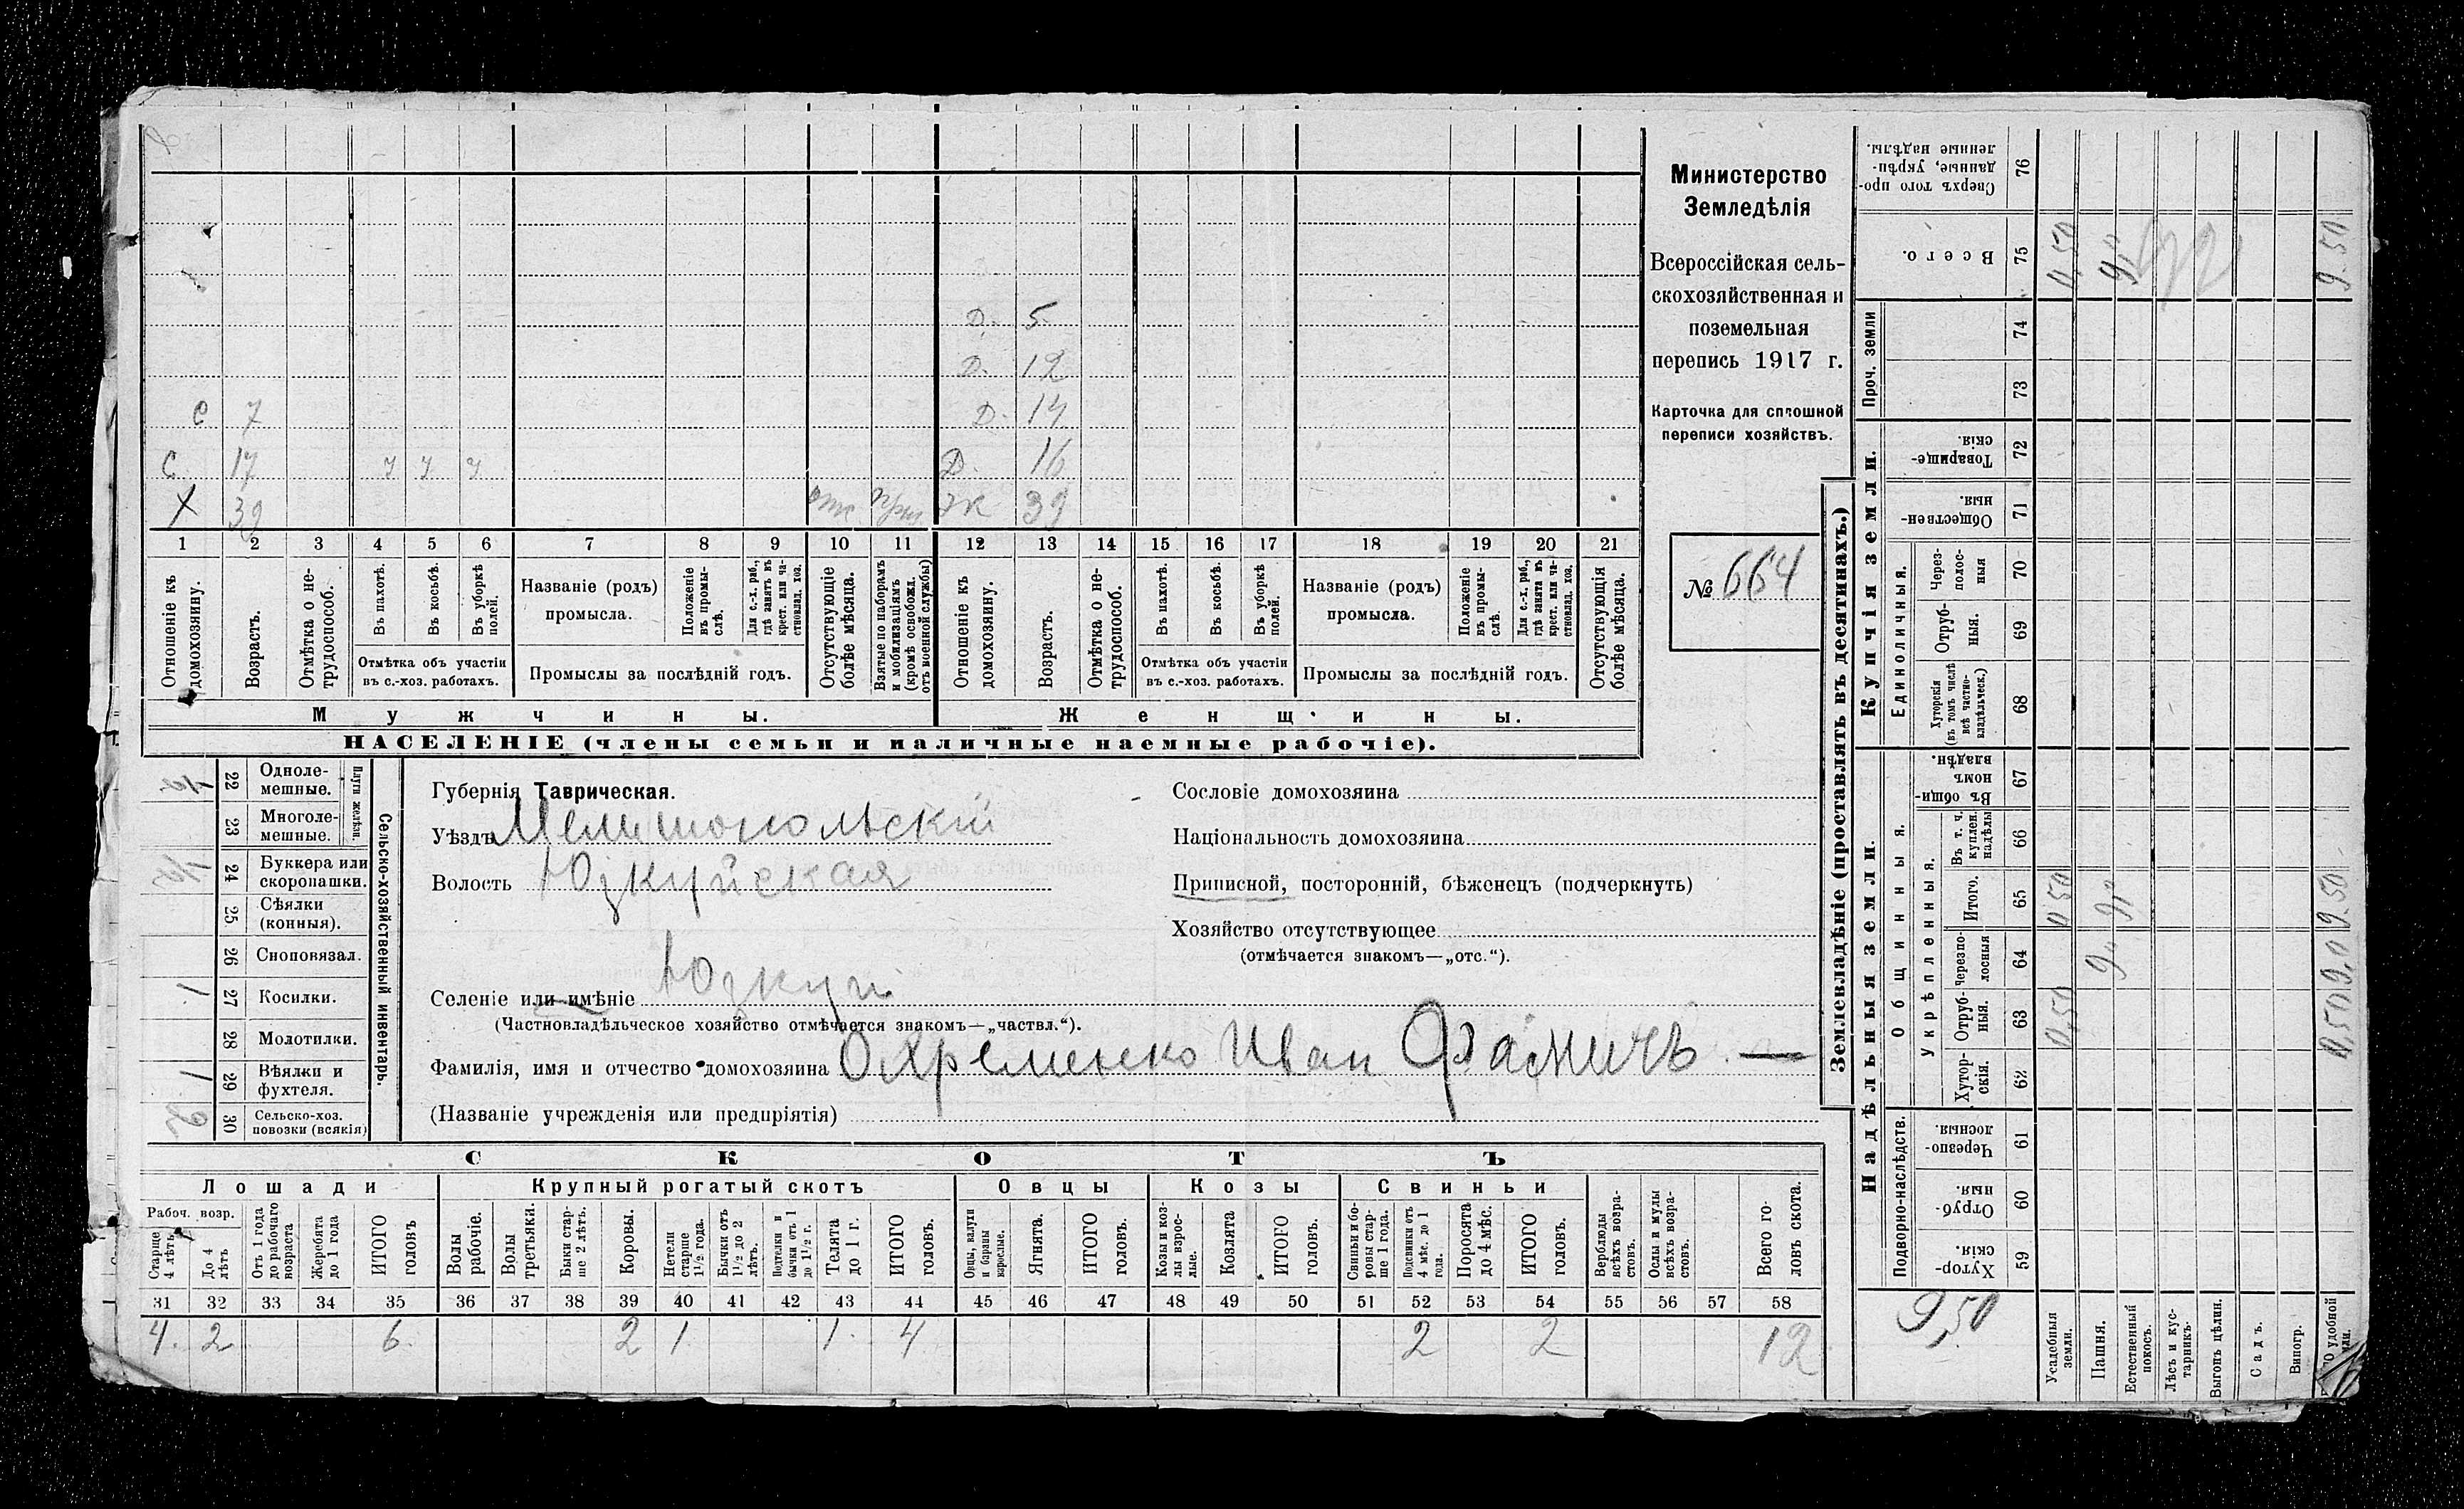 Министерство
Земледѣлія
Всероссійская сель-
скохозяйственная и
поземельная
перепись 1917 г.
Карточка для сплошной
переписи хозяйствъ.
№ 664
Д. 5
Д. 12
С 7 Д. 14
С. 17 у у у Д. 16
Х 39 отс ж 39
1 2 3 4 5 6 7 8 9 10 11 12 13 14 15 16 17 18 19 20 21
Отношеніе къ домохозяину.
Возрастъ.
Отмѣтка о не-трудоспособ.
Въ пахотѣ.
Въ косьбѣ.
Въ уборкѣ полей.
Отмѣтка объ участіи
въ с.-хоз. работахъ.
Названіе (родъ)
промысла.
Положеніе въ промы-слѣ.
Для с.-х. раб., гдѣ занятъ въ крест. или ча-стновлад. хоз.
Промыслы за послѣдній годъ.
Отсутствующіе болѣе мѣсяца.
Взятые по наборамъ и мобилизаціямъ (кромѣ освобожд. отъ военной службы)
Отношеніе къ домохозяину.
Возрастъ.
Отмѣтка о не-трудоспособ.
Въ пахотѣ.
Въ косьбѣ.
Въ уборкѣ полей.
Отмѣтка объ участіи
въ с.-хоз. работахъ.
Названіе (родъ)
промысла.
Положеніе въ промы-слѣ.
Для с.-х. раб., гдѣ занята въ крест. или ча-стновлад. хоз.
Промыслы за послѣдній годъ.
Отсутствующія болѣе мѣсяца.
Мужчины. Женщины.
НАСЕЛЕНІЕ (члены семьи и наличные наемные рабочіе).
Сельско-хозяйственный инвентарь.
Плуги желѣзн.
22 Одноле-мешные.
23 Многоле-мешные.
24 Буккера или скоропашки.
25 Сѣялки (конныя).
26 Сноповязал.
1 27 Косилки.
28 Молотилки.
1 29 Вѣялки и фухтеля.
2 30 Сельско-хоз. повозки (всякія)
Губернія Таврическая.
Уѣздъ Мелитопольскій
Волость Юзкуйская
Селеніе или имѣніе Юзкуи
(Частновладѣльческое хозяйство отмѣчается знакомъ—„частвл.“).
Фамилія, имя и отчество домохозяина Охременко Иван Фомичъ
(Названіе учрежденія или предпріятія)
Сословіе домохозяина
Національность домохозяина
Приписной, посторонній, бѣженецъ (подчеркнуть)
Хозяйство отсутствующее
(отмѣчается знакомъ—„отс.“).
СКОТЪ
Лошади Крупный рогатый скотъ Овцы Козы Свиньи
Рабоч. возр.
Старше 4 лѣтъ
До 4 лѣтъ
Отъ 1 года до рабочаго возраста
Жеребята до 1 года
ИТОГО головъ
Волы рабочіе.
Волы третьяки.
Быки стар-ше 2 лѣтъ.
Коровы.
Нетели старше 1½ года.
Бычки отъ 1½ до 2 лѣтъ.
Подтелки и бычки отъ 1 до 1½ г.
Телята до 1 г.
ИТОГО головъ.
Овцы, валухи и бараны взрослые.
Ягнята.
ИТОГО головъ.
Козы и коз-лы взрос-лые.
Козлята
ИТОГО головъ.
Свиньи и бо-ровы стар-ше 1 года.
Подсвинки отъ 4 мѣс. до 1 года.
Поросята до 4 мѣс.
ИТОГО головъ.
Верблюды всѣхъ возра-стовъ.
Ослы и мулы всѣхъ возра-стовъ.
Всего го-ловъ скота.
31 32 33 34 35 36 37 38 39 40 41 42 43 44 45 46 47 48 49 50 51 52 53 54 55 56 57 58
4. 2 6. 2 1 1. 4 2 2 12
Землевладѣніе (проставлять въ десятинахъ.)
Надѣльныя земли. Купчія земли. Проч. земли
Подворно-наслѣдств.
Общинныя.
Укрѣпленныя.
Единоличныя.
59 Хутор-скія.
60 Отруб-ныя.
61 Черезпо-лосныя.
62 Хутор-скія.
63 Отруб-ныя.
64 Черезпо-лосныя
65 Итого.
66 Въ т. ч. куплен. надѣлы
67 Въ общи-номъ владѣн.
68 Хуторскія (въ томъ числѣ всѣ частно-владѣльческ.)
69 Отруб-ныя.
70 Через-полос-ныя
71 Обществен-ныя.
72 Товарище-скія.
73
74
75 Всего.
76 Сверхъ того про-данные, укрѣп-ленные надѣлы.
9,50
Усадебныя земли. 0,50 0 50 0,50
Пашня. 9" 9" 9"
Естественный покосъ.
Лѣсъ и кус-тарникъ.
Выгонъ цѣлин.
Садъ.
Виногр.
удобной 0,50 9,0 9.50 9.50